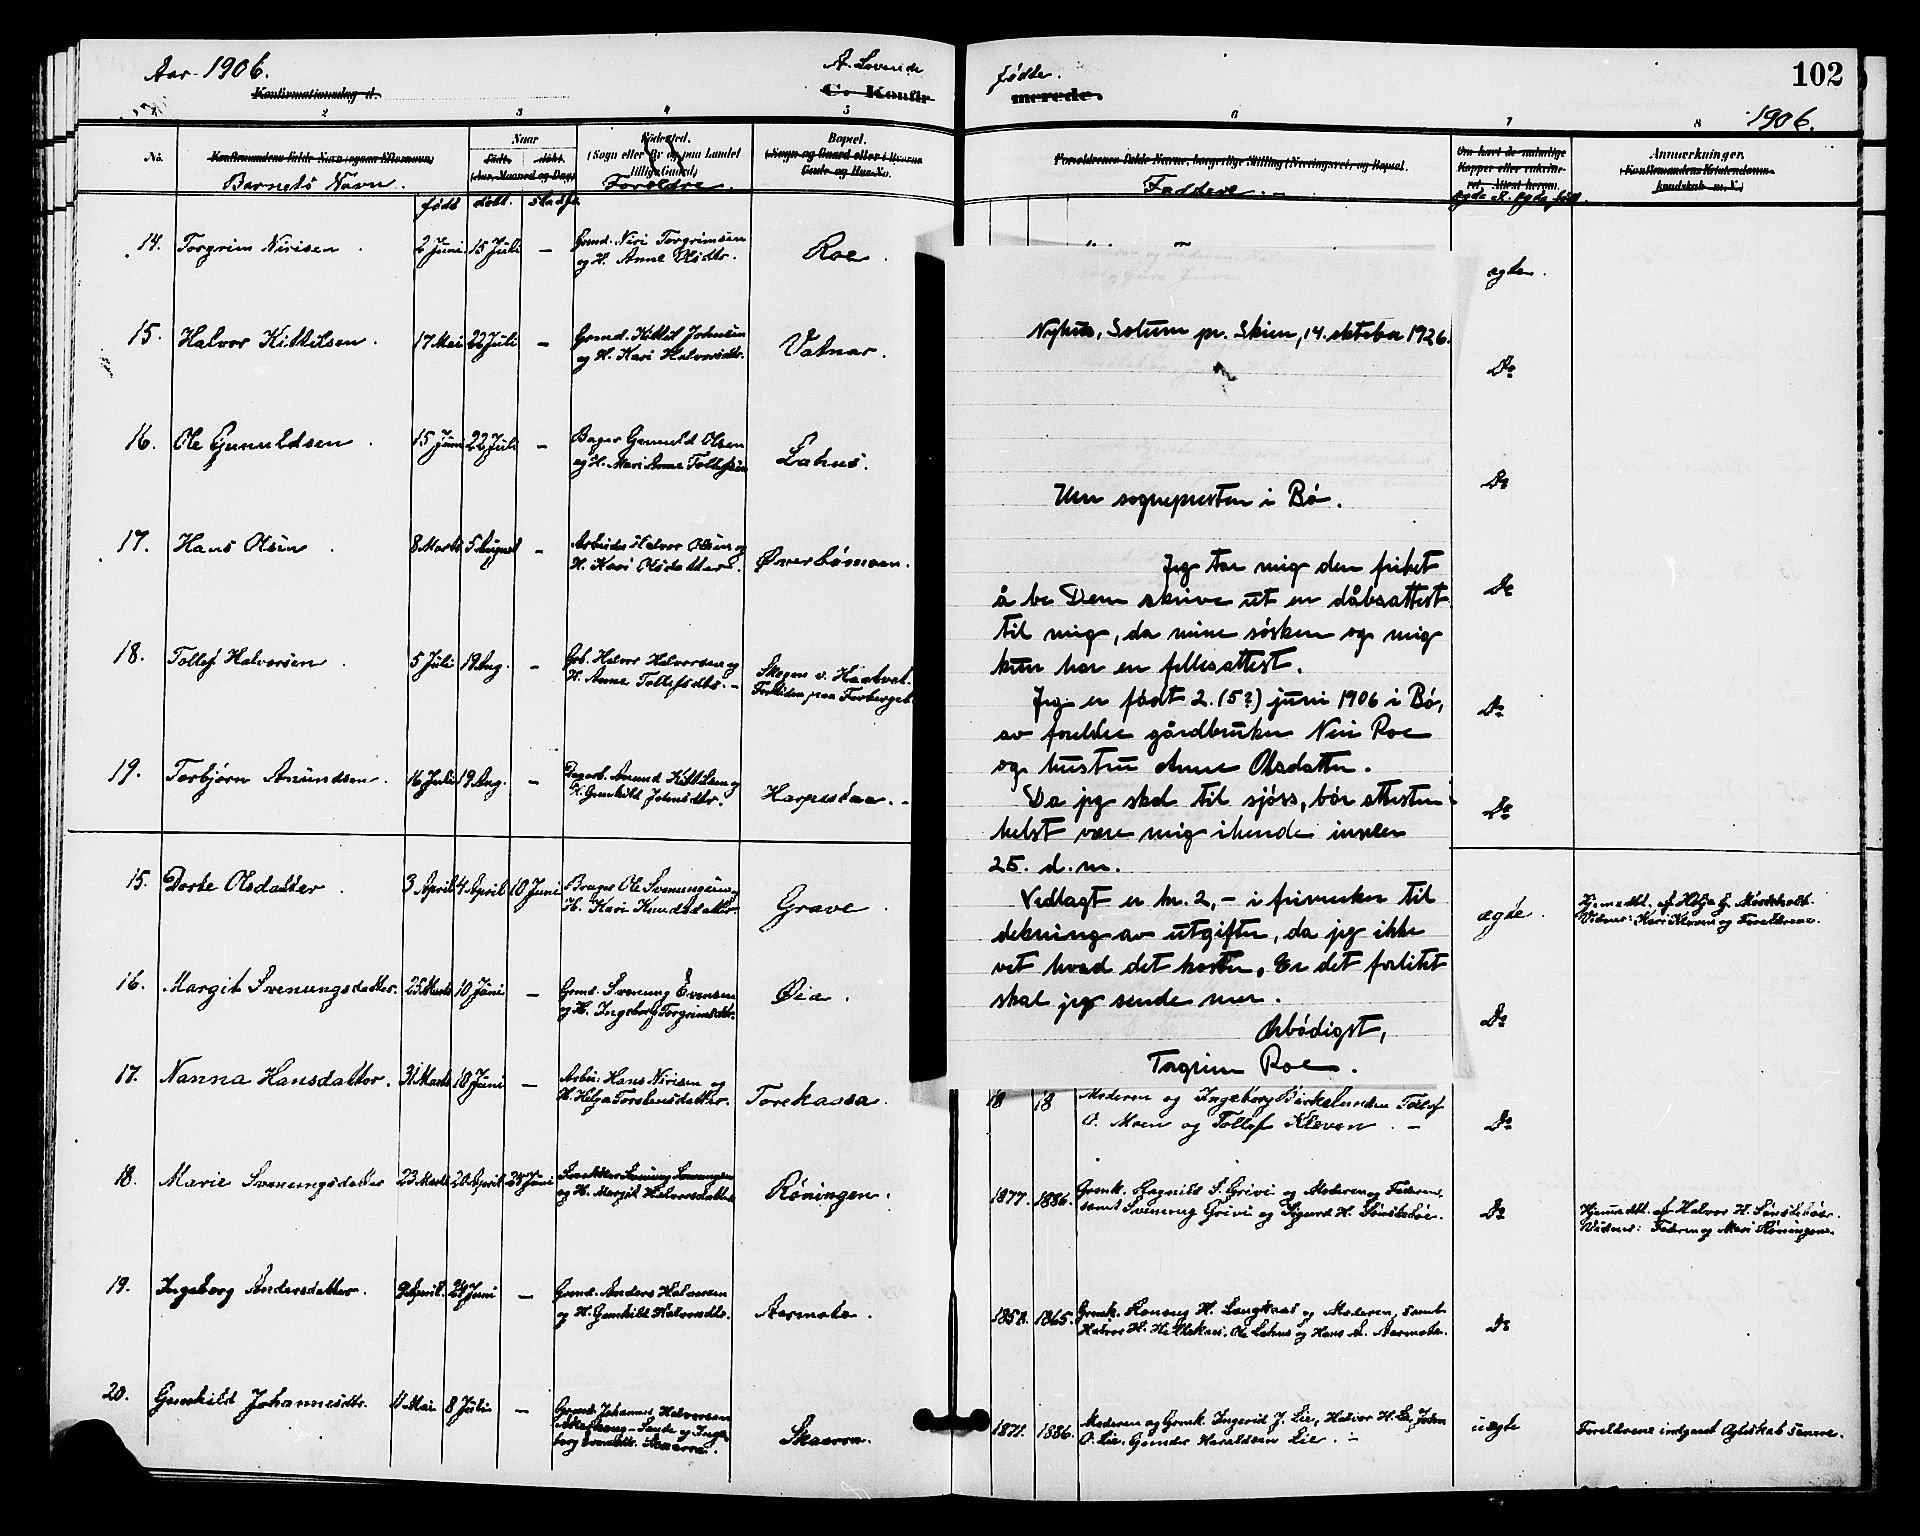 Aar 1906.
A. Levende
fødte.
102
Konfirmationsdag d.
C. Konfir
merede.
1906.
2 3 4 5 6 7 8
No.
Konfirmandens fulde Navn (ogsaa Efternavn)
Barnets Navn.
Naar
født. døbt.
(Aar, Maaned og Dag)
Fødested.
(Sogn eller By og paa Landet
tillige Gaard)
Forældre.
Bopæl.
(Sogn og Gaard eller i Byerne
Gade og Hus-No.
Forældrenes fulde Navne, borgerlige Stilling (Næringsvei) og Bopæl.
Faddere. -
Om havt de naturlige
Kopper eller vaksine-
ret. Attest herom.
ægte el. uægte født.
Anmerkninger.
(Konfirmandens Kristendoms-
kundskab m. V.)
født døbt. stadf.
14. Torgrim Nirisen. 2 Juni. 15 Juli -
Grmd. Niri Torgrimsen
og H. Anne Olsdtr.
Roe. ægte.
15. Halvor Kittilsen. 17 Mai 22 Juli -
Grmd. Kittil Johnsen
og H. Kari Halvorsdtr.
Vatnar. Do
16. Ole Gunuldsen 15 Juni 22 Juli -
Bager Gunuld Olsen
og H. Mari Anne Tollefsen
Lahus. Do
17. Hans Olsen 8 Marts 5 August -
Arbeider Halvor Olsen og
H. Kari Olsdatter.
Øverbømoen. Do
18. Tollef Halvorsen 5 Juli 19 Aug. -
Grb. Halvor Halvorsen og
H. Anne Tollefsdtr. -
Skogen v. Haatvet.
Fortiden paa Forberget. Do
19. Torbjørn Anundsen. 16 Juli 19 Aug. -
Dagarb. Anund Kittilsen og
H. Gunhild Johnsdtr.
Harpestaa. - Do
15. Dorte Olsdatter. 3 April 4 April 10 Juni
Bruger Ole Svenungsen og
H. Kari Knudsdatter.
Grave ægte.
Hjemmedbt. af Helje G. Mørkholt.
Vidner: Kari Kleven og Forældrene.
16. Margit Svenungsdatter. 25 Marts 10 Juni -
Grmd. Svenung Evensen
og H. Ingeborg Torgrimsdtr.
Øia. Do
17. Nanna Hansdatter. 31 Marts 10 Juni -
Arbei: Hans Nirisen og
H. Helga Torstensdatter.
Torekaasa. Do
18 18 Moderen og Ingeborg Birkelunden Tollef
O. Moen og Tollef Kleven. -
18. Marie Svenungsdatter 23 Marts 20 April 24 Juni
Snekker Svenung Svenungsen
og H. Margit Halvorsdatter
Røningen.
1877. 1886. Grmk. Ragnild S. Grivi og Moderen og Faderen,
samt Svenung Grivi og Sigurd H. Sønstebøe. Do
Hjemmedbt. af Halvor H. Sønstebøe.
Vidner: Faderen og Mari Røningene.
19. Ingeborg Andersdatter. 9 April. 24 Juni -
Grmd. Anders Halvorsen
og H. Gunhild Halvorsdtr.
Aarmote.
1858. 1865. Grmk. Ranveig H. Langkaas og Moderen, samt
Halvor H. Heltekaas, Ole Lahus og Hans A. Aarmote. Do
20. Gunhild Johannesdtr. 11 Mai 8 Juli -
Grmd. Johannes Halvorsen
Sande og Inge-
borg Svendtr. Skaarra.
Skaarra.
1871. 1886. Moderen og Grmk. Ingerid J. Lie, Halvor H. Lie, John
O. Lie, Gunder Haraldsen Lie. - uægte
Forældrene indgaaet Ægteskab senere.
Nyhus, Solum pr. Skien, 14. oktober 1926.
Herr sognepresten i Bø.
Jeg tar mig den frihet
å be Dem skrive ut en dåbsattest
til mig, da mine søsken og mig
kun har en fellesattest.
Jeg er født 2. (5?) juni 1906 i Bø,
av foreldre gårdbruker Niri Roe
og hustru Anne Olsdatter.
Da jeg skal til sjøss, bør attesten
helst være mig ihende innen
25. d.m.
Vedlagt er kr. 2,- i frimerker til
dekning av utgifter, da jeg ikke
vet hvad det koster. Er det forlitet
skal jeg sende mer.
Ærbødigst,
Torgrim Roe.